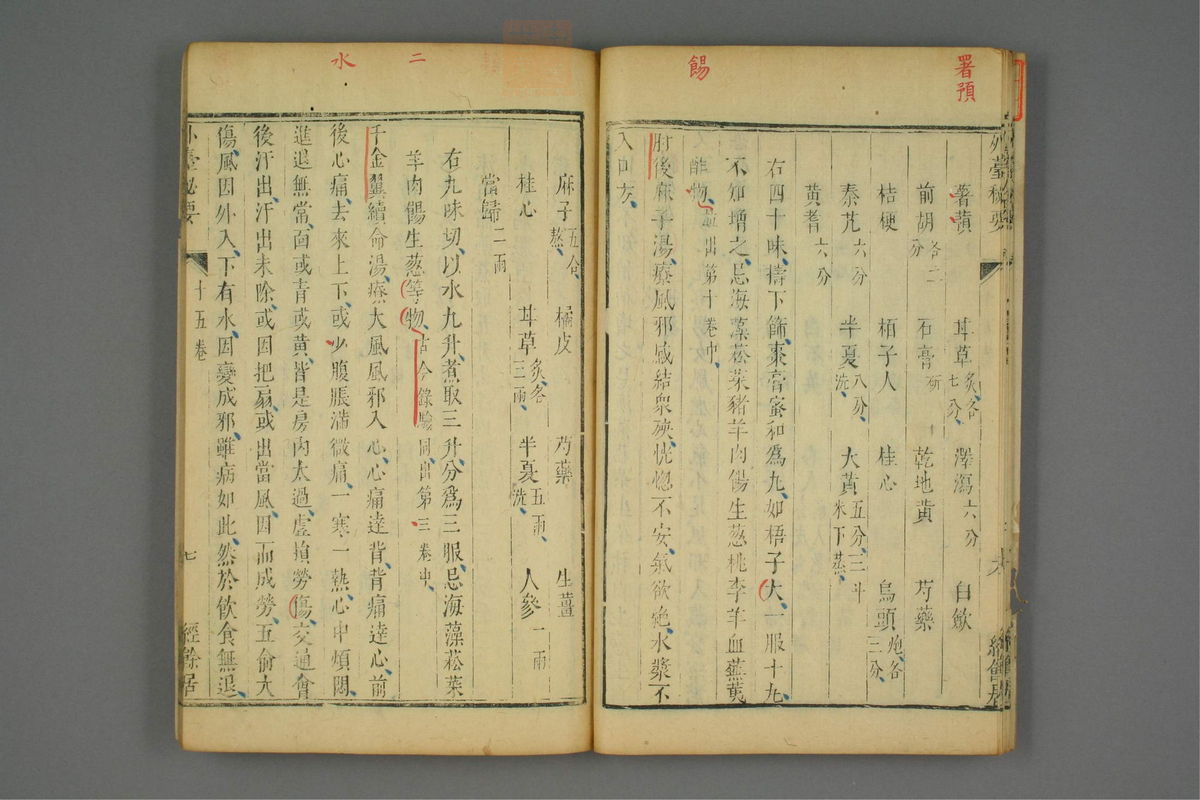 署預
餳
外臺秘要
經餘居
薯蕷 甘草炙各七分 澤瀉六分 白歛
前胡各二分 石膏研 乾地黃 芍藥
桔梗 栢子人 桂心 烏頭炮各三分
秦艽六分 半夏八分洗 大黃五分三斗米下蒸
黃耆六分
右四十味擣下篩棗膏蜜和爲丸如梧子大一服十丸
不知增之忌海藻菘菜豬羊肉餳生葱桃李羊血蕪荑
酢物並出第十卷中
肘後麻子湯療風邪感結衆殃恍惚不安氣欲絕水漿不
入口方
二
水
麻子五合熬 橘皮 芍藥 生薑
桂心 甘草炙各三兩 半夏五兩洗 人參一兩
當歸二兩
右九味切以水九升煮取三升分爲三服忌海藻菘菜
羊肉餳生葱等物古今錄驗同出第三卷中
千金翼續命湯療大風風邪入心心痛達背背痛達心前
後心痛去來上下或少腹脹滿微痛一寒一熱心中煩悶
進退無常面或青或黃皆是房內太過虛損勞傷交通會
後汗出汗出未除或因把扇或出當風因而成勞五俞大
傷風因外入下有水因變成邪雖病如此然於飲食無退
外臺秘要 十五卷 七 經餘居